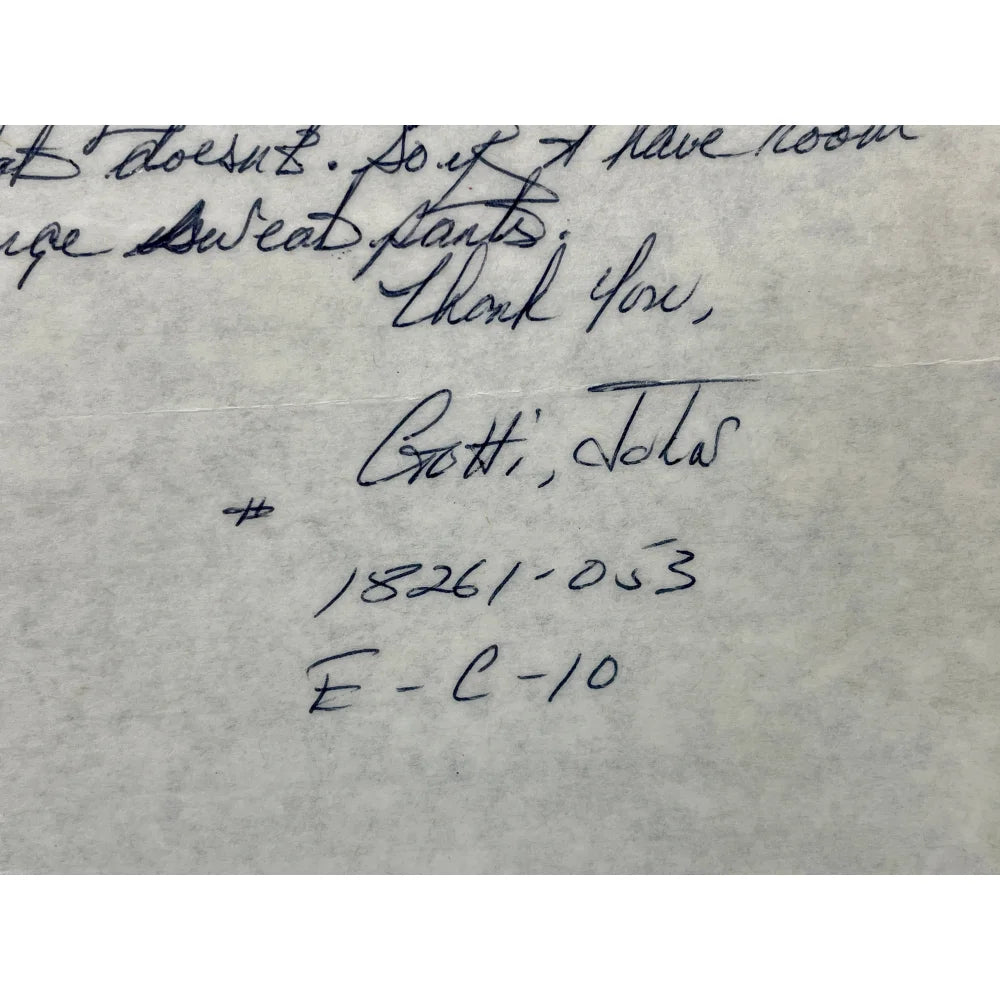 doesnt. So if I have room
sweat pants.
Thank You,
Gotti, John
#
18261-053
E-C-10